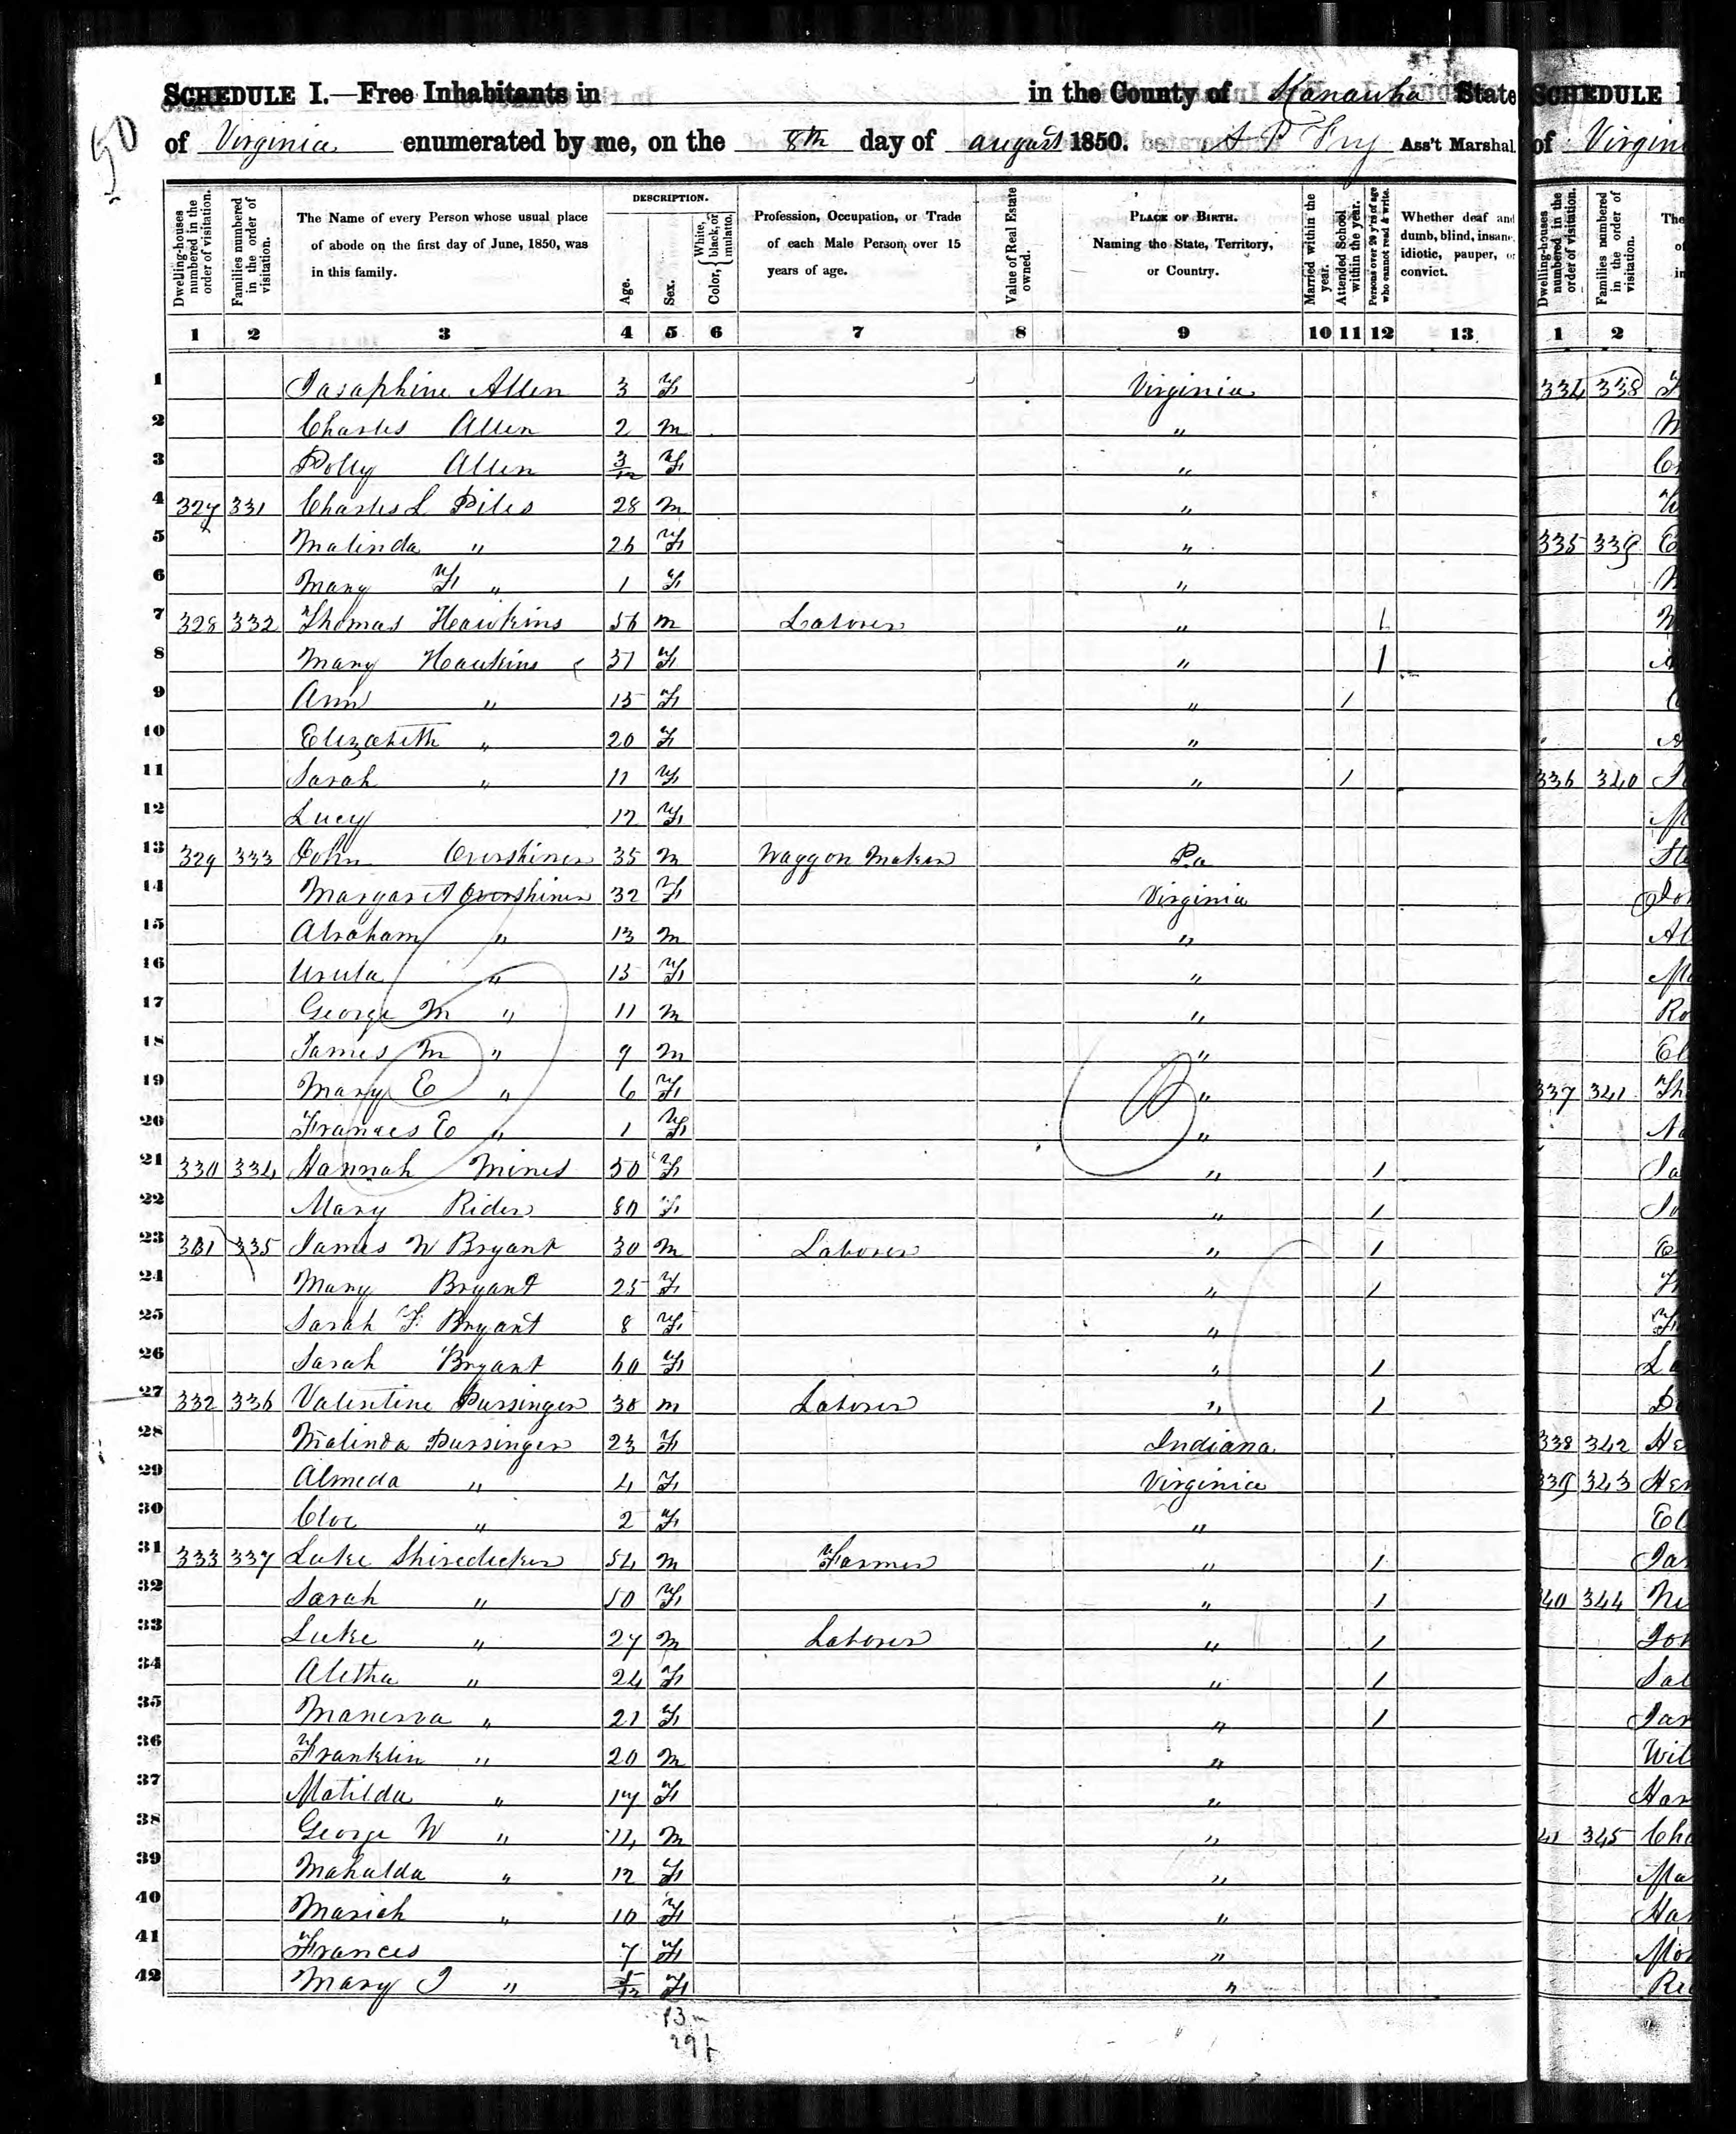 50
SCHEDULE I.—Free Inhabitants in in the County of Kanawha State
of Virginia enumerated by me, on the 8th day of august 1850. Fry Ass't Marshal.
Dwelling-houses numbered in the order of visitation.
Families numbered in the order of visitation.
The Name of every Person whose usual place of abode on the first day of June, 1850, was in this family.
DESCRIPTION.
Age.
Sex.
Color, { White, black, or mulatto.
Profession, Occupation, or Trade of each Male Person over 15 years of age.
Value of Real Estate owned.
PLACE OF BIRTH. Naming the State, Territory, or Country.
Married within the year.
Attended School within the year.
Persons over 20 y'rs of age who cannot read & write.
Whether deaf and dumb, blind, insane, idiotic, pauper, or convict.
1 2 3 4 5 6 7 8 9 10 11 12 13
1 Josaphine Allen 3 F Virginia
2 Charles Allen 2 m "
3 Polly Allen 3/12 F "
4 327 331 Charles L Piles 28 m "
5 Malinda " 26 F "
6 Mary F " 1 F "
7 328 332 Thomas Hawkins 56 m Laborer " 1
8 Mary Hawkins 37 F " 1
9 Ann " 15 F " 1
10 Elizabeth " 20 F "
11 Sarah " 11 F " 1
12 Lucy 12 F
13 329 333 John Overshiner 35 m Waggon Maker Pa
14 Margaret Overshiner 32 F Virginia
15 Abraham " 13 m "
16 Usula " 13 F "
17 George M " 11 m "
18 James M " 9 m "
19 Mary E " 6 F "
20 Frances E " 1 F "
21 330 334 Hannah Mines 50 F " 1
22 Mary Rider 80 F " 1
23 331 335 James W Bryant 30 m Laborer " 1
24 Mary Bryant 25 F " 1
25 Sarah F. Bryant 8 F "
26 Sarah Bryant 60 F " 1
27 332 336 Valentine Pursinger 38 m Laborer " 1
28 Malinda Pursinger 23 F Indiana
29 Almeda " 4 F Virginia
30 Cloe " 2 F "
31 333 337 Luke Shiredecker 54 m Farmer " 1
32 Sarah " 50 F " 1
33 Luke " 27 m Laborer " 1
34 Aletha " 24 F " 1
35 Manerva " 21 F " 1
36 Franklin " 20 m "
37 Matilda " 17 F "
38 George W " 14 m "
39 Mahalda " 12 F "
40 Mariah " 10 F "
41 Frances 7 F "
42 Mary J " F "
13 m
29 f
SCHEDULE I
of Virgin
Dwelling-houses numbered in the order of visitation.
Families numbered in the order of visitation.
The
1 2
334 338
335 339
336 340
337 341
338 342 He
339 343 Hen
40 344
41 345 Cha